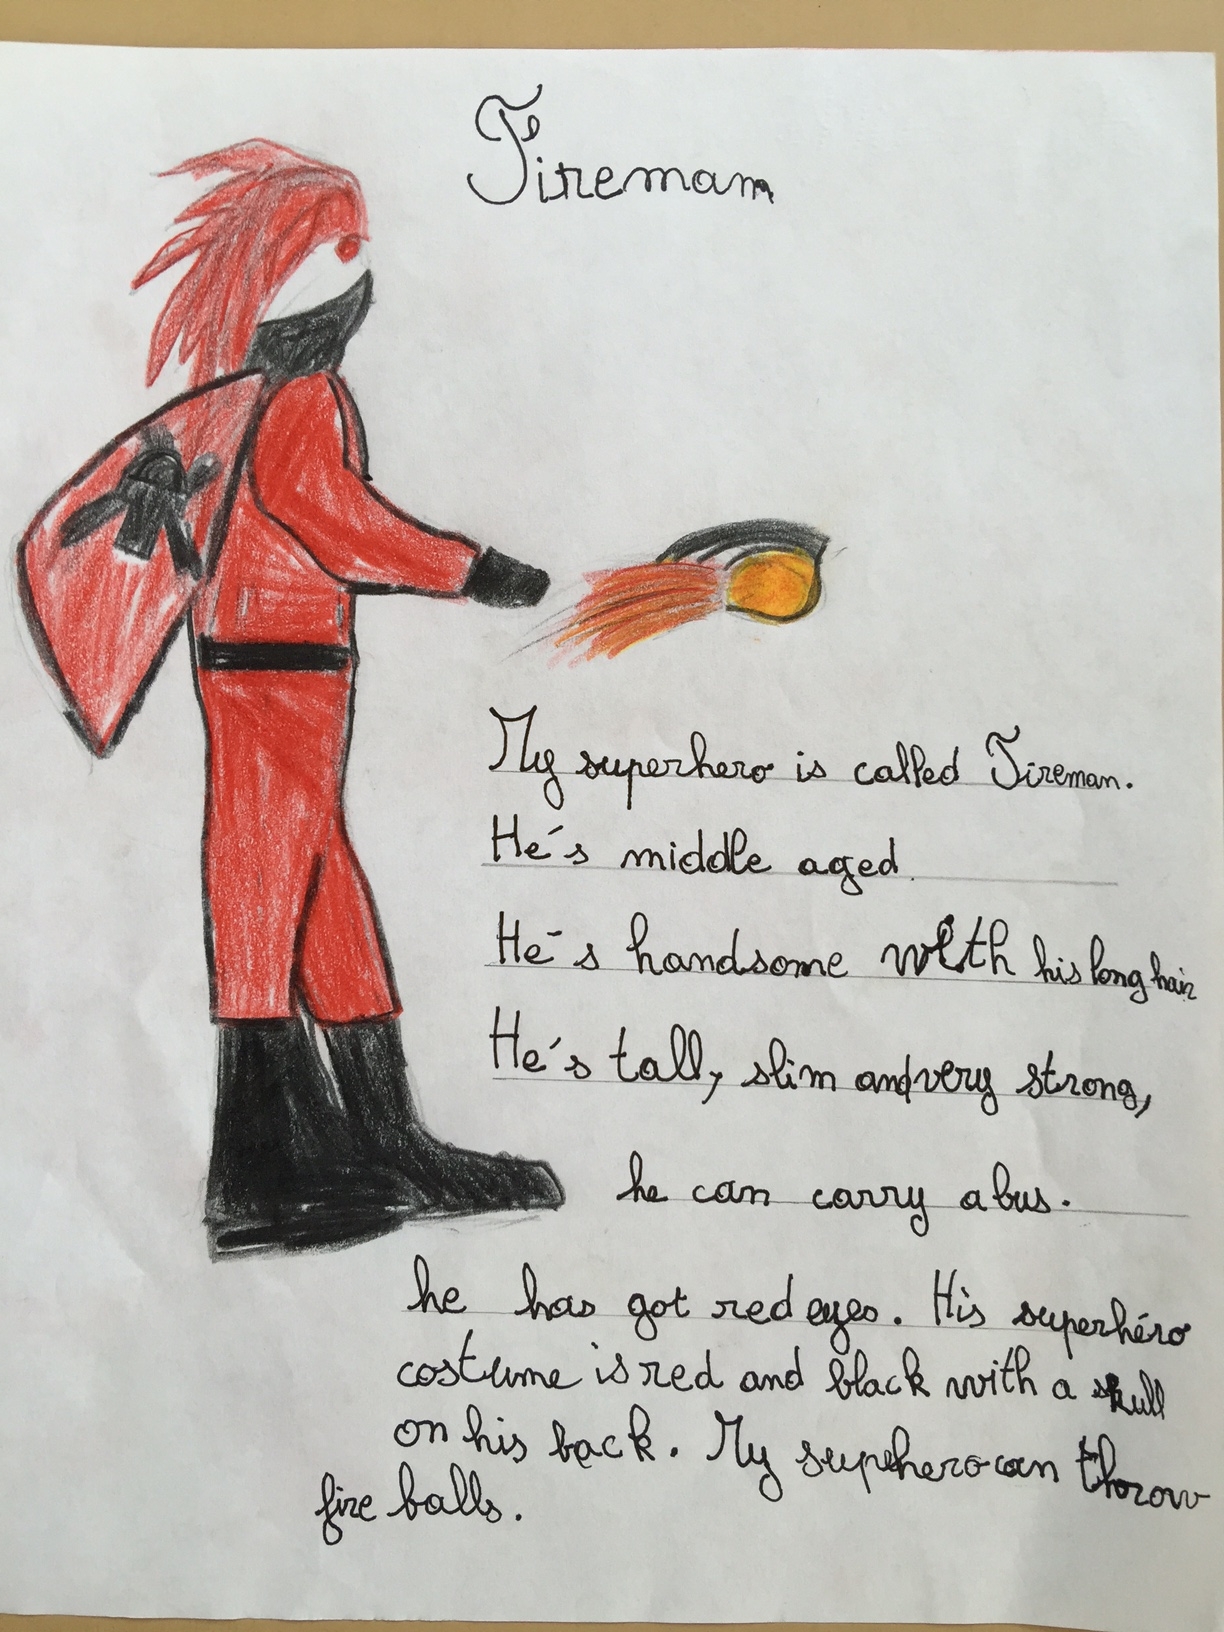 Fireman
My superhero is called Fireman.
He's middle aged.
He's handsome with his long hair
He's tall, slim and very strong,
he can carry a bus.
he has got red eyes. His superhéro
costume is red and black with a skull
on his back. My supehero can throw
fire balls.